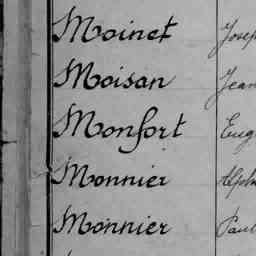 Moinet Josep
Moisan Jean
Monfort Eug
Monnier Alph
Monnier Paul